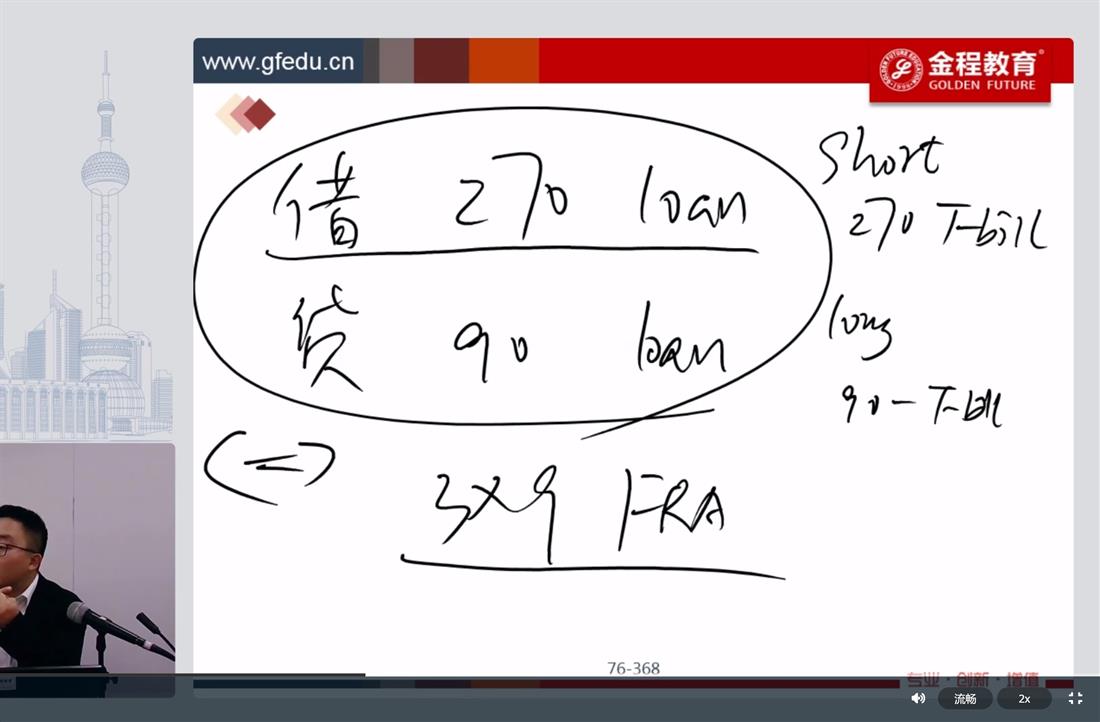 www.gfedu.cn
金程教育
GOLDEN FUTURE
借 270 loan
贷 90 loan
Short
270 T-bill
long
90- T-bill
3×9 FRA
76-368
专业·创新·增值
流畅
2x